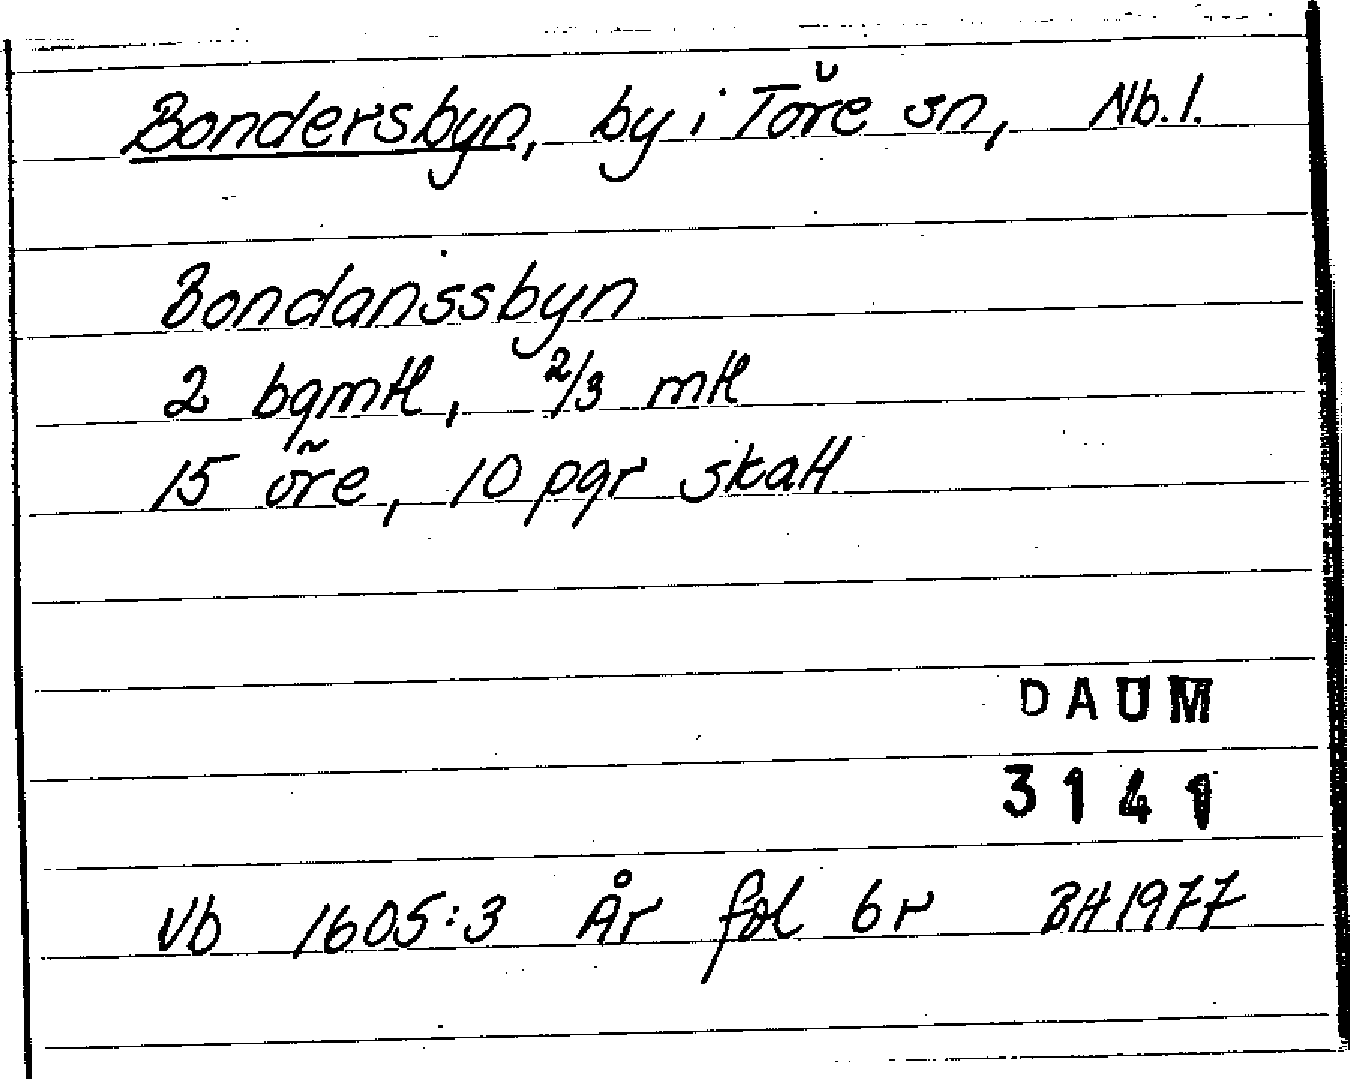 Bondersbyn, by i Töre sn, Nb. l.
Bondanssbyn
2 bgmtl, 2/3 mtl
15 öre, 10 pgr skatt
DAUM
3141
Vb 1605:3 År fol 6r BH 1977